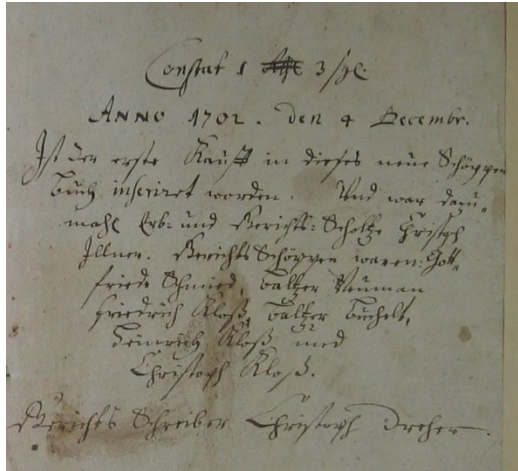 Constat 1 3 sgl.
ANNO 1702. den 4 Decembr.
Ist der erste Kauff in dieses neüe Schöppen
Buch inseriret worden. Und war damah¬
mahl Erb- und Gerichts-Scholtze Christoph
Illner. Gerichts Schöppen waren: Gott¬
friedt Schmied, Baltzer Neuman
Friedrich Kloß, Baltzer Büchelt,
Heinrich Kloß und
Christoph Kloß.
Gerichts Schreiber Christoph Dreher.